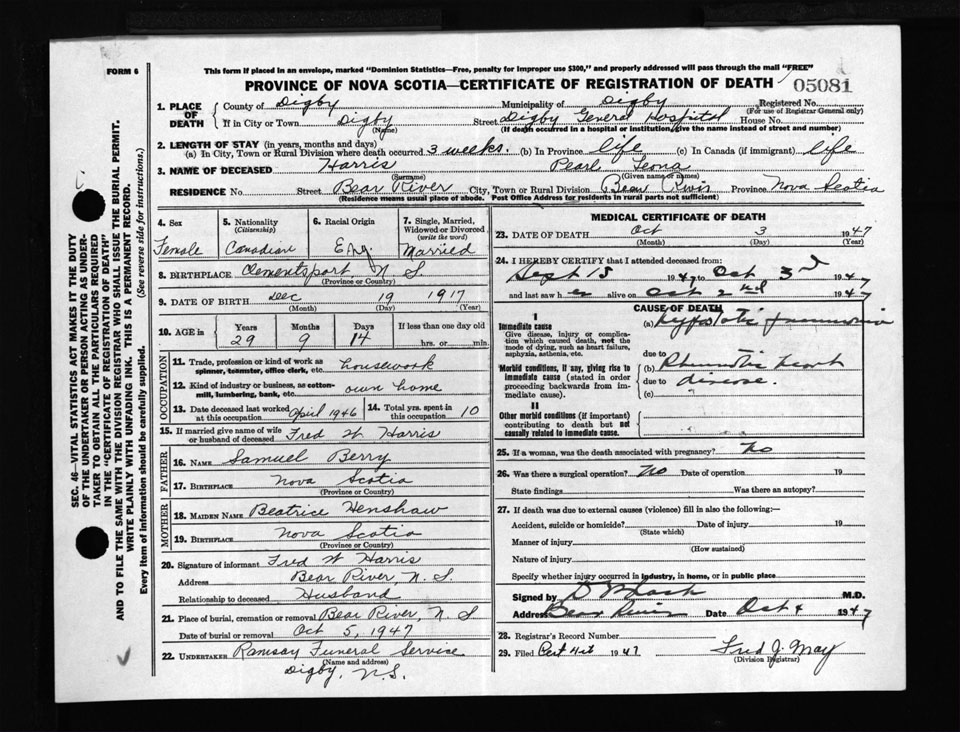 FORM 6
This form if placed in an envelope, marked "Dominion Statistics—Free, penalty for improper use $300," and properly addressed will pass through the mail "FREE"
PROVINCE OF NOVA SCOTIA—CERTIFICATE OF REGISTRATION OF DEATH 05081
1. PLACE OF DEATH
County of Digby Municipality of Digby Registered No.
(For use of Registrar General only)
If in City or Town Digby Street Digby General Hospital House No.
(Name) (If death occurred in a hospital or institution, give the name instead of street and number)
2. LENGTH OF STAY (in years, months and days)
(a) In City, Town or Rural Division where death occurred 3 weeks. (b) In Province life (c) In Canada (if immigrant) life
3. NAME OF DECEASED Harris Pearl Leona
(Surname) (Given name or names)
RESIDENCE No. Street Bear River City, Town or Rural Division Bear River Province Nova Scotia
(Residence means usual place of abode. Post Office Address for residents in rural parts not sufficient)
4. Sex
Female
5. Nationality
(Citizenship)
Canadian
6. Racial Origin
Eng
7. Single, Married, Widowed or Divorced
(write the word)
Married
8. BIRTHPLACE Clementsport, N. S.
(Province or Country)
9. DATE OF BIRTH Dec 19 1917
(Month) (Day) (Year)
10. AGE in
Years Months Days If less than one day old
29 9 14 hrs. or min.
OCCUPATION
11. Trade, profession or kind of work as spinner, teamster, office clerk, etc. housework
12. Kind of industry or business, as cotton-mill, lumbering, bank, etc. own home
13. Date deceased last worked at this occupation April 1946 14. Total yrs. spent in this occupation 10
15. If married give name of wife or husband of deceased Fred W Harris
FATHER
16. NAME Samuel Berry
17. BIRTHPLACE Nova Scotia
(Province or Country)
MOTHER
18. MAIDEN NAME Beatrice Henshaw
19. BIRTHPLACE Nova Scotia
(Province or Country)
20. Signature of informant Fred W Harris
Address Bear River, N. S.
Relationship to deceased Husband
21. Place of burial, cremation or removal Bear River, N. S
Date of burial or removal Oct 5, 1947
22. UNDERTAKER Ramsay Funeral Service
(Name and address)
Digby, N.S.
MEDICAL CERTIFICATE OF DEATH
23. DATE OF DEATH Oct 3 1947
(Month) (Day) (Year)
24. I HEREBY CERTIFY that I attended deceased from:
Sept 15 1947 to Oct 3rd 1947
and last saw her alive on Oct 2nd 1947
CAUSE OF DEATH
I
Immediate cause
Give disease, injury or complication which caused death, not the mode of dying, such as heart failure, asphyxia, asthenia, etc.
(a) Hypostatic pneumonia
due to
Morbid conditions, if any, giving rise to immediate cause (stated in order proceeding backwards from immediate cause).
(b) Rheumatic heart
due to disease.
(c)
II
Other morbid conditions (if important) contributing to death but not causally related to immediate cause.
25. If a woman, was the death associated with pregnancy? No
26. Was there a surgical operation? No Date of operation 19
State findings Was there an autopsy?
27. If death was due to external causes (violence) fill in also the following:—
Accident, suicide or homicide? Date of injury 19
(State which)
Manner of injury
(How sustained)
Nature of injury
Specify whether injury occurred in industry, in home, or in public place
Signed by M.D.
Address Bear River Date Oct 4 1947
28. Registrar's Record Number
29. Filed 1947 Fred J. May
(Division Registrar)
SEC. 46—VITAL STATISTICS ACT MAKES IT THE DUTY
OF THE UNDERTAKER OR PERSON ACTING AS UNDER-
TAKER TO OBTAIN ALL THE PARTICULARS REQUIRED
IN THE "CERTIFICATE OF REGISTRATION OF DEATH"
AND TO FILE THE SAME WITH THE DIVISION REGISTRAR WHO SHALL ISSUE THE BURIAL PERMIT.
WRITE PLAINLY WITH UNFADING INK. THIS IS A PERMANENT RECORD.
Every item of information should be carefully supplied. (See reverse side for instructions.)